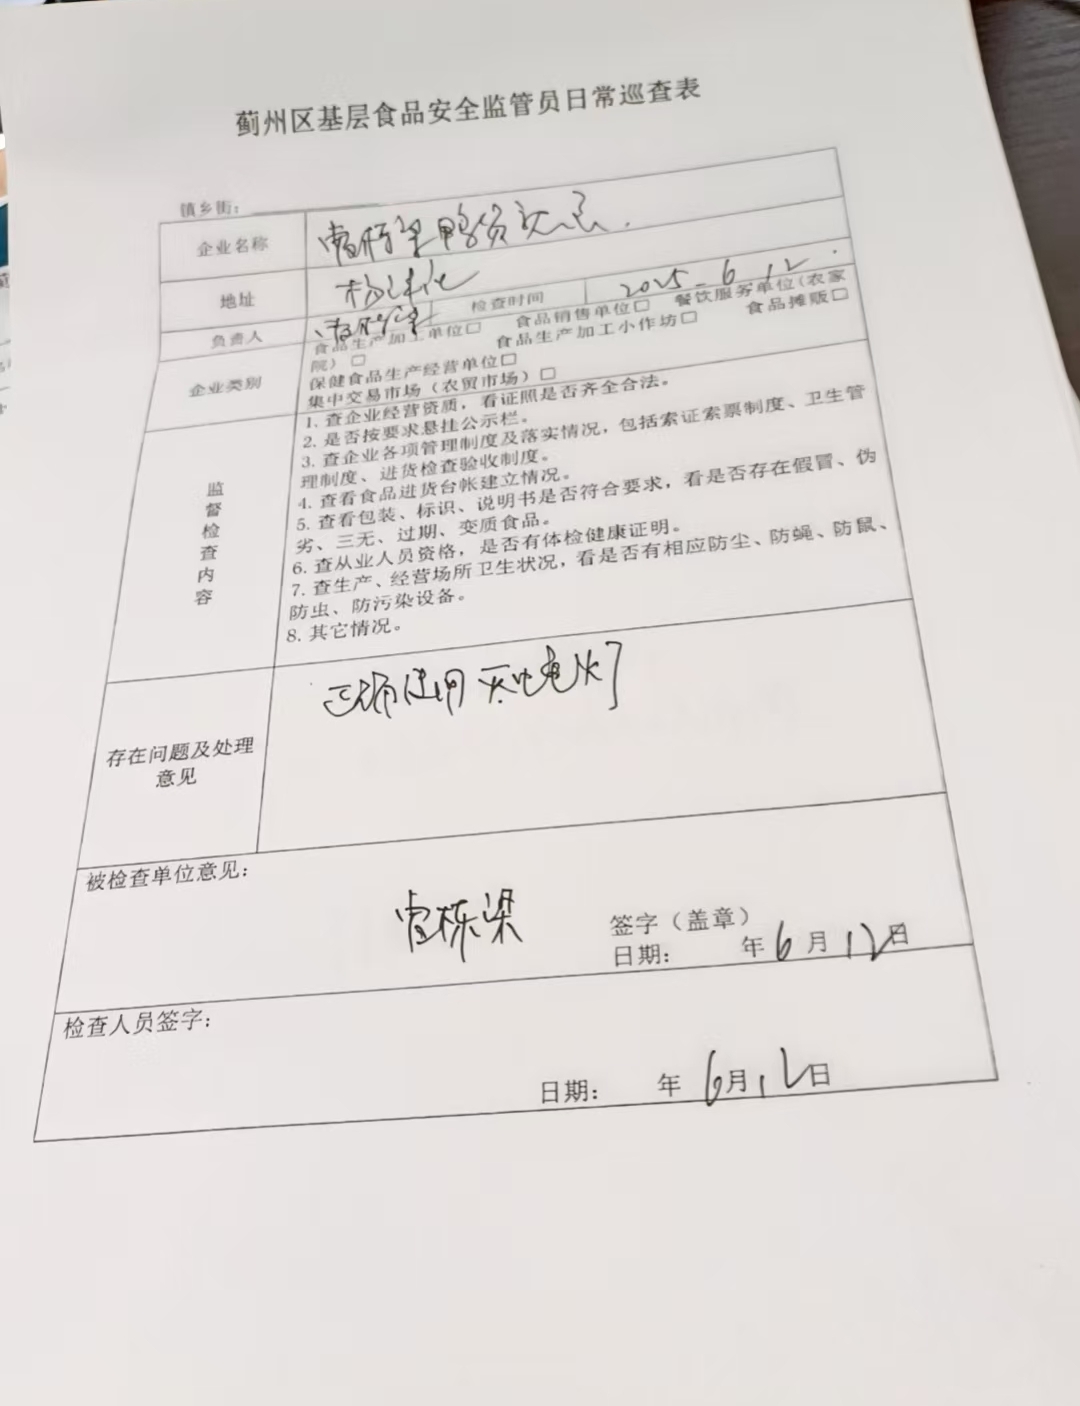 蓟州区基层食品安全监管员日常巡查表
镇乡街:
企业名称
地址
检查时间 2025.6.12.
负责人
企业类别
食品生产加工单位□ 食品销售单位□ 餐饮服务单位(农家
院)□ 食品生产加工小作坊□ 食品摊贩□
保健食品生产经营单位□
集中交易市场(农贸市场)□
监督检查内容
1. 查企业经营资质,看证照是否齐全合法。
2. 是否按要求悬挂公示栏。
3. 查企业各项管理制度及落实情况,包括索证索票制度、卫生管
理制度、进货检查验收制度。
4. 查看食品进货台帐建立情况。
5. 查看包装、标识、说明书是否符合要求,看是否存在假冒、伪
劣、三无、过期、变质食品。
6. 查从业人员资格,是否有体检健康证明。
7. 查生产、经营场所卫生状况,看是否有相应防尘、防蝇、防鼠、
防虫、防污染设备。
8. 其它情况。
存在问题及处理
意见
使用灭蚊灯
被检查单位意见:
曹栋梁 签字(盖章)
日期: 年6月12日
检查人员签字:
日期: 年6月12日